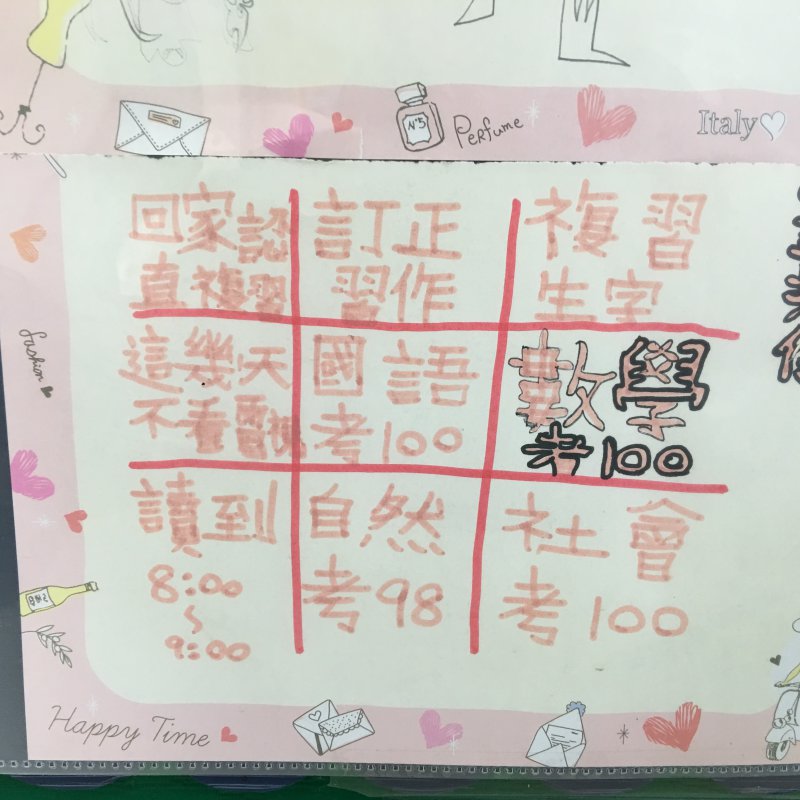 Perfume
N°5
Italy
回家認
真複習
訂正
習作
複習
生字
fashion
這幾天
不看電視
國語
考100
數學
考100
讀到
8:00
~
9:00
自然
考98
社會
考100
Happy Time